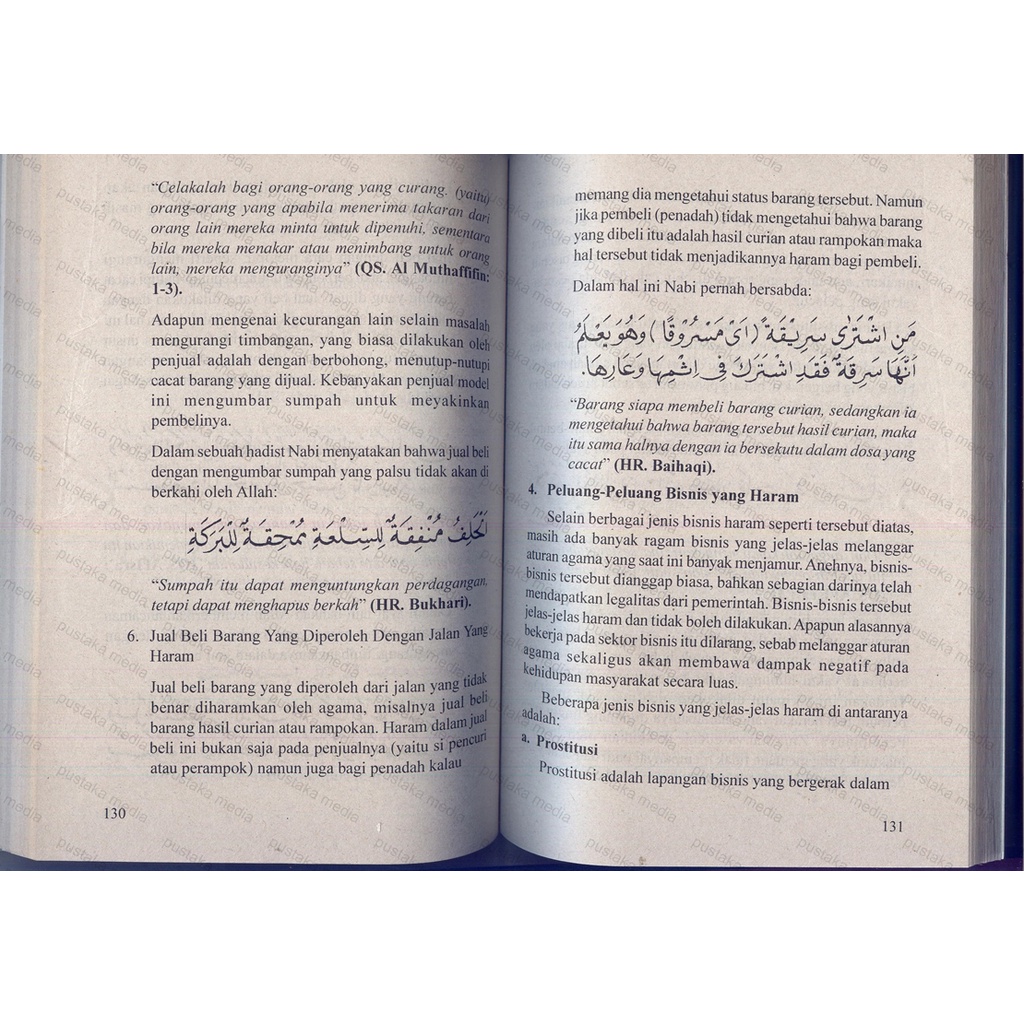 “Celakalah bagi orang-orang yang curang. (yaitu)
orang-orang yang apabila menerima takaran dari
orang lain mereka minta untuk dipenuhi, sementara
bila mereka menakar atau menimbang untuk orang
lain, mereka menguranginya” (QS. Al Muthaffifin:
1-3).
Adapun mengenai kecurangan lain selain masalah
mengurangi timbangan, yang biasa dilakukan oleh
penjual adalah dengan berbohong, menutup-nutupi
cacat barang yang dijual. Kebanyakan penjual model
ini mengumbar sumpah untuk meyakinkan
pembelinya.
Dalam sebuah hadist Nabi menyatakan bahwa jual beli
dengan mengumbar sumpah yang palsu tidak akan di
berkahi oleh Allah:
اَلْحَلِفُ مُنْفِقَةٌ لِلسِّلْعَةِ مُمْحِقَةٌ لِلْبَرَكَةِ
“Sumpah itu dapat menguntungkan perdagangan,
tetapi dapat menghapus berkah” (HR. Bukhari).
6. Jual Beli Barang Yang Diperoleh Dengan Jalan Yang
Haram
Jual beli barang yang diperoleh dari jalan yang tidak
benar diharamkan oleh agama, misalnya jual beli
barang hasil curian atau rampokan. Haram dalam jual
beli ini bukan saja pada penjualnya (yaitu si pencuri
atau perampok) namun juga bagi penadah kalau
130
memang dia mengetahui status barang tersebut. Namun
jika pembeli (penadah) tidak mengetahui bahwa barang
yang dibeli itu adalah hasil curian atau rampokan maka
hal tersebut tidak menjadikannya haram bagi pembeli.
Dalam hal ini Nabi pernah bersabda:
مَنِ اشْتَرٰى سَرِيْقَةً (اَىْ مَسْرُوْقًا) وَهُوَ يَعْلَمُ
اَنَّهَا سَرِقَةٌ فَقَدِ اشْتَرَكَ فِى اِثْمِهَا وَعَارِهَا.
“Barang siapa membeli barang curian, sedangkan ia
mengetahui bahwa barang tersebut hasil curian, maka
itu sama halnya dengan ia bersekutu dalam dosa yang
cacat” (HR. Baihaqi).
4. Peluang-Peluang Bisnis yang Haram
Selain berbagai jenis bisnis haram seperti tersebut diatas,
masih ada banyak ragam bisnis yang jelas-jelas melanggar
aturan agama yang saat ini banyak menjamur. Anehnya, bisnis-
bisnis tersebut dianggap biasa, bahkan sebagian darinya telah
mendapatkan legalitas dari pemerintah. Bisnis-bisnis tersebut
jelas-jelas haram dan tidak boleh dilakukan. Apapun alasannya
bekerja pada sektor bisnis itu dilarang, sebab melanggar aturan
agama sekaligus akan membawa dampak negatif pada
kehidupan masyarakat secara luas.
Beberapa jenis bisnis yang jelas-jelas haram di antaranya
adalah:
a. Prostitusi
Prostitusi adalah lapangan bisnis yang bergerak dalam
131
pustaka media